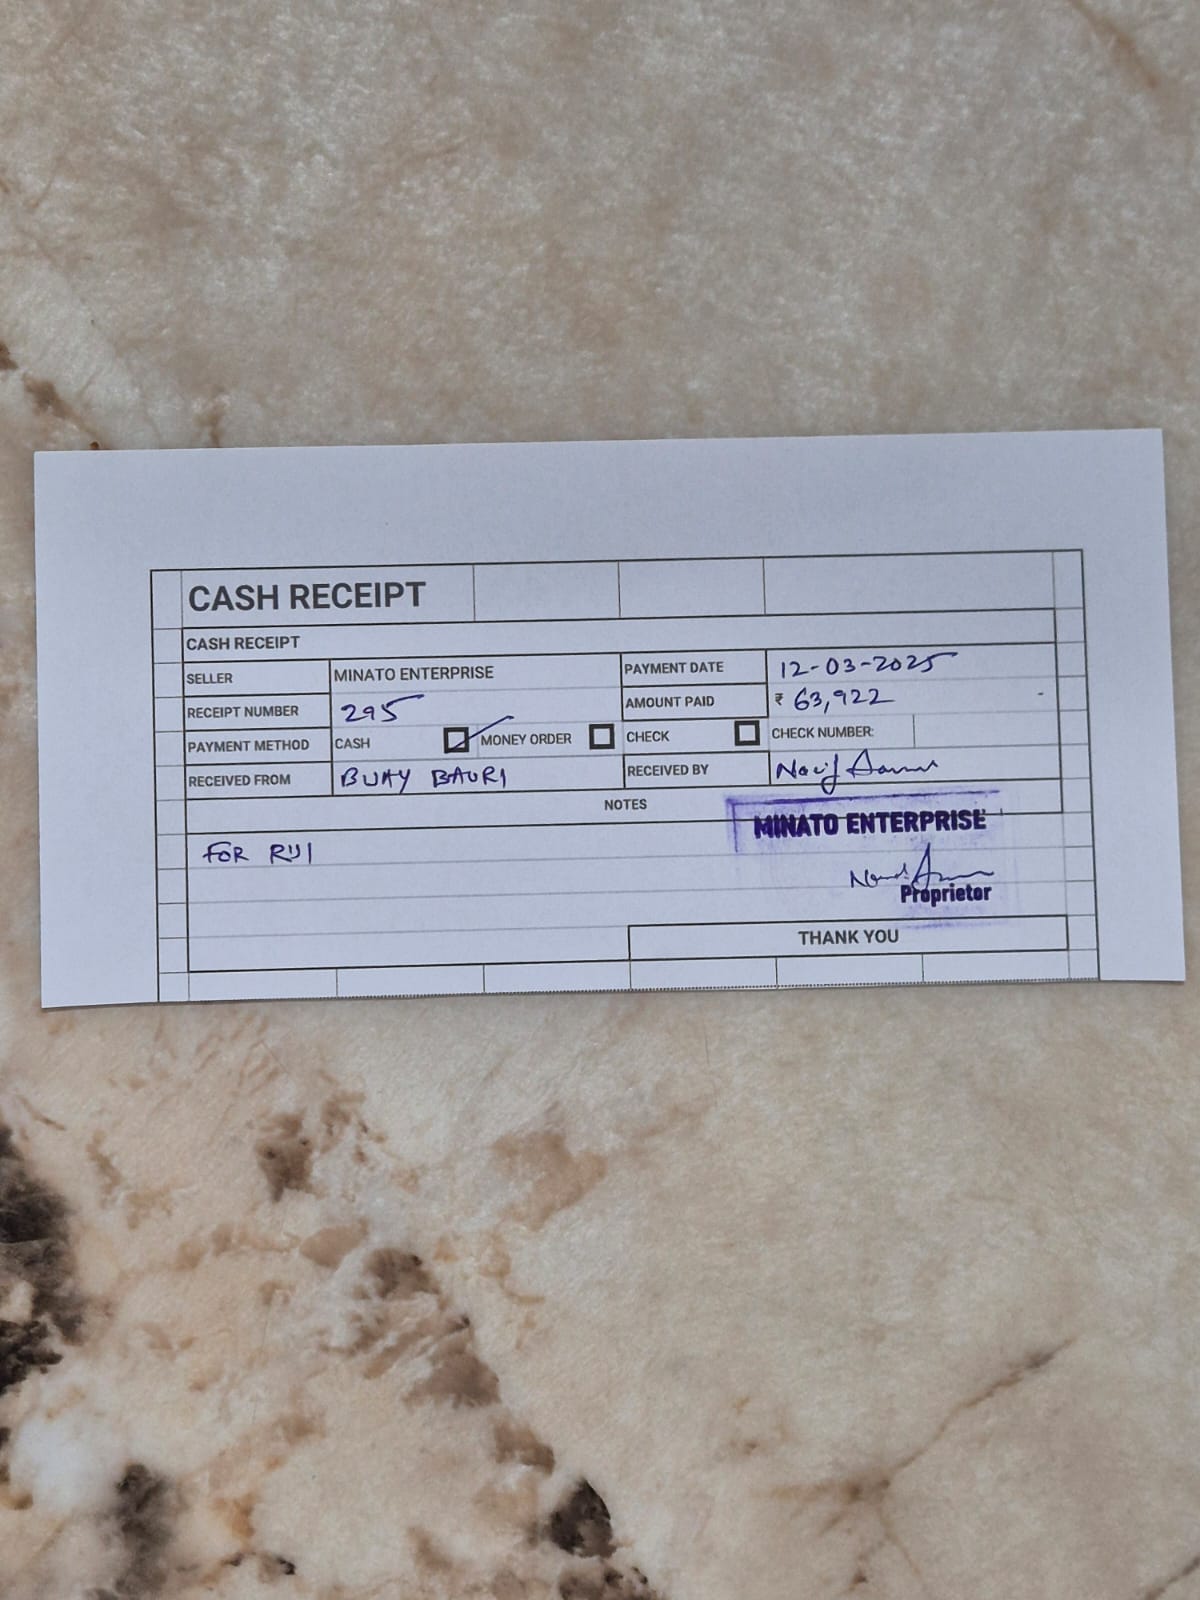 CASH RECEIPT
CASH RECEIPT
SELLER MINATO ENTERPRISE PAYMENT DATE 12-03-2025
RECEIPT NUMBER 295 AMOUNT PAID ₹ 63,922
PAYMENT METHOD CASH MONEY ORDER CHECK CHECK NUMBER:
RECEIVED FROM BAURI RECEIVED BY
NOTES
MINATO ENTERPRISE
FOR
Proprietor
THANK YOU